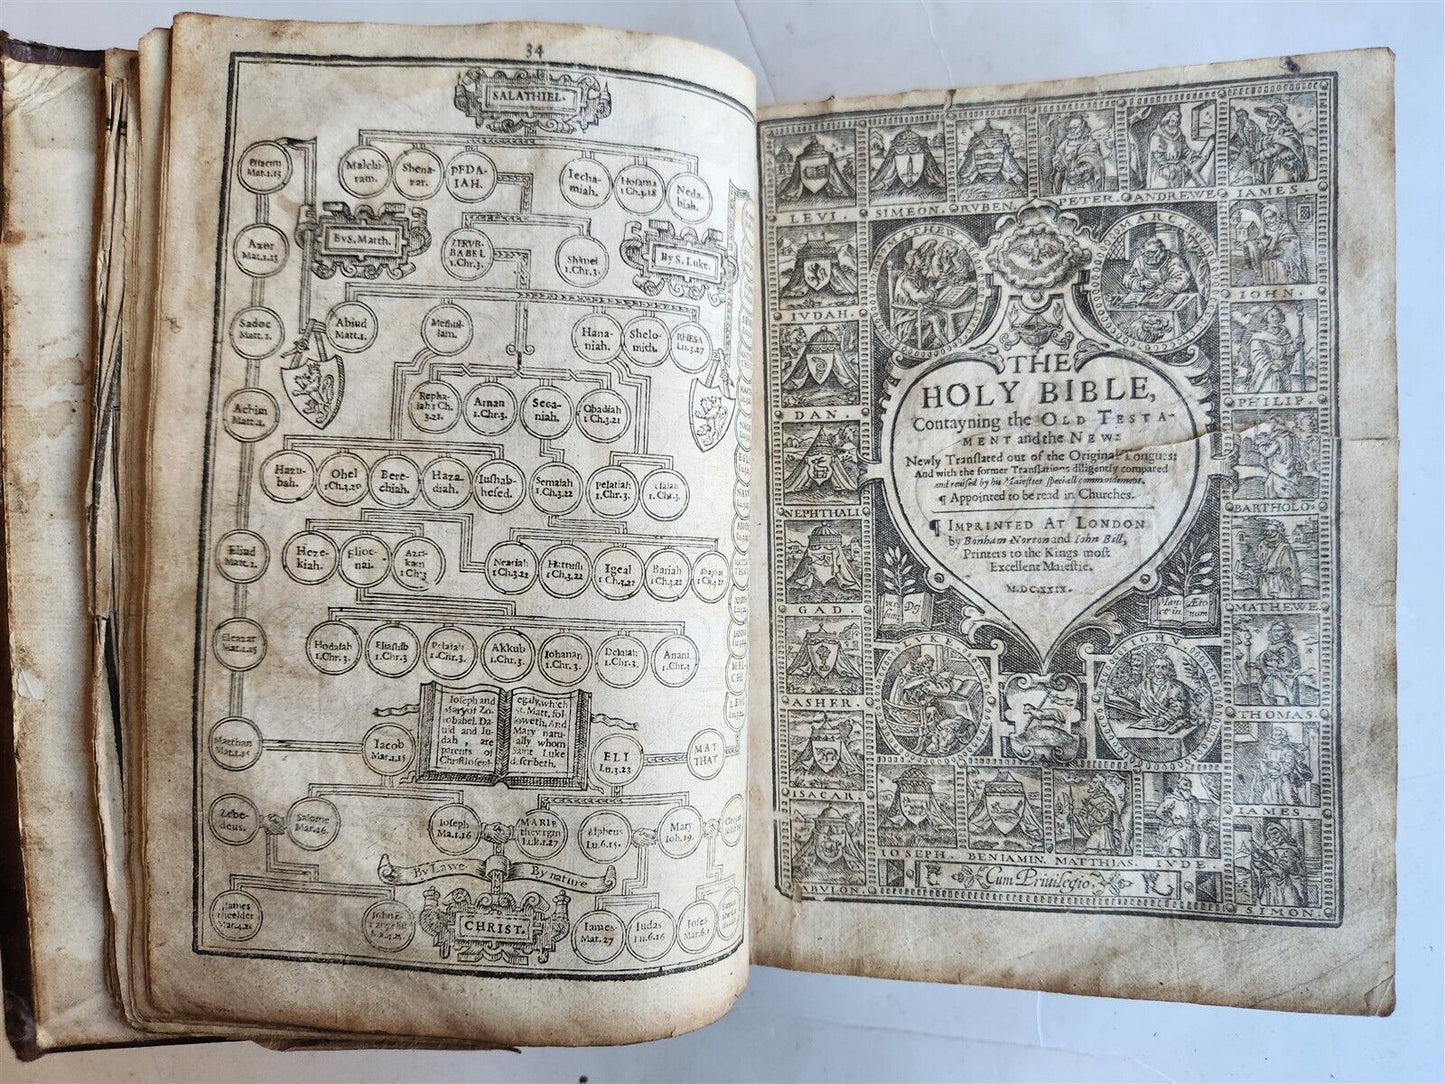 34
SALATHIEL.
Mat.1.13
Malchi-
ram.
Shena-
zar.
PEDA-
IAH.
Iecha-
miah.
Hosama
1 Ch.3.18
Neda-
biah.
By S. Matth.
By S. Luke.
Azor
Mat.1.13
ZERUB-
BABEL
1.Chr.3.
Shimei
1.Chr.3.
Sadoc
Matt.1.
Abiud
Matt.1.
Meshul-
lam.
Hana-
niah.
Shelo-
mith.
RHESA
Lu.3.27
Achim
Matt.1.
Repha-
iah 1 Ch.
3.21.
Arnan
1.Chr.3.
Seca-
niah.
Obadiah
1 Ch.3.21
Hazu-
bah.
Ohel
1.Ch.3.20
Bere-
chiah.
Haza-
diah.
Iushab-
hesed.
Semaiah
1.Ch.3.22
Pelatiah
1.Chr.3.
Isaiah
1.Chr.3.
Eliud
Matt.1.
Heze-
kiah.
Elioe-
nai.
Azri-
kam
1 Ch.3
Neariah
1 Ch.3.22
Hattush
1 Ch.3.22
Igeal
1 Ch.3.22
Bariah
1 Ch.3.22
Shaphat
1 Ch.3.22
Eleazar
Mat.1.15
Hodaiah
1.Chr.3.
Eliashib
1.Chr.3
Pelaiah
1.Chr.3.
Akkub
1.Chr.3.
Iohanan
1.Chr.3.
Delaiah
1.Chr.3.
Anani
1.Chr.3
Ioseph and
Mary of Zo-
robabel. Da-
uid and Iu-
dah, are
parents of
Christ Ioseph
egaly, which
S. Matt. fol-
loweth, And
Mary natu-
ally whom
Saint Luke
describeth.
Matthan
Mat.1.15
Iacob
Mat.1.15
ELI
Lu.3.23
MAT
THAT
Zebe-
deus.
Salome
Mar.16.
Ioseph
Ma.1.16
MARIE
the virgin
Luk.1.27
Alpheus
Lu.6.15.
Mary
Ioh.19.
By Lawe
By nature
Iames
the elder
Mar.4.21
Iohn E-
uangelist
Mat.4.21
CHRIST.
Iames
Mat.27
Iudas
Lu.6.16
Ioses
Mar.6.3
LEVI.
SIMEON.
RVBEN.
PETER.
ANDREWE
IAMES.
MATHEW.
MARC
IVDAH.
IOHN.
DAN.
PHILIP.
THE
HOLY BIBLE,
Contayning the OLD TESTA-
MENT and the NEW:
Newly Translated out of the Original Tongues:
And with the former Translations diligently compared
and reuised by his Maiesties speciall commandement.
¶ Appointed to be read in Churches.
¶ IMPRINTED AT LONDON
by Bonham Norton and Iohn Bill,
Printers to the Kings most
Excellent Maiestie.
M.DC.XXIX.
NEPHTHALI
BARTHOLO:
GAD.
MATHEWE
Ver-
bum
Dei
Manet
in
Æter-
num
LVKE
IOHN
ASHER.
THOMAS.
ISACAR.
IAMES
IOSEPH.
BENIAMIN.
MATTHIAS.
IVDE
ZABVLON.
Cum Priuilegio.
SIMON.